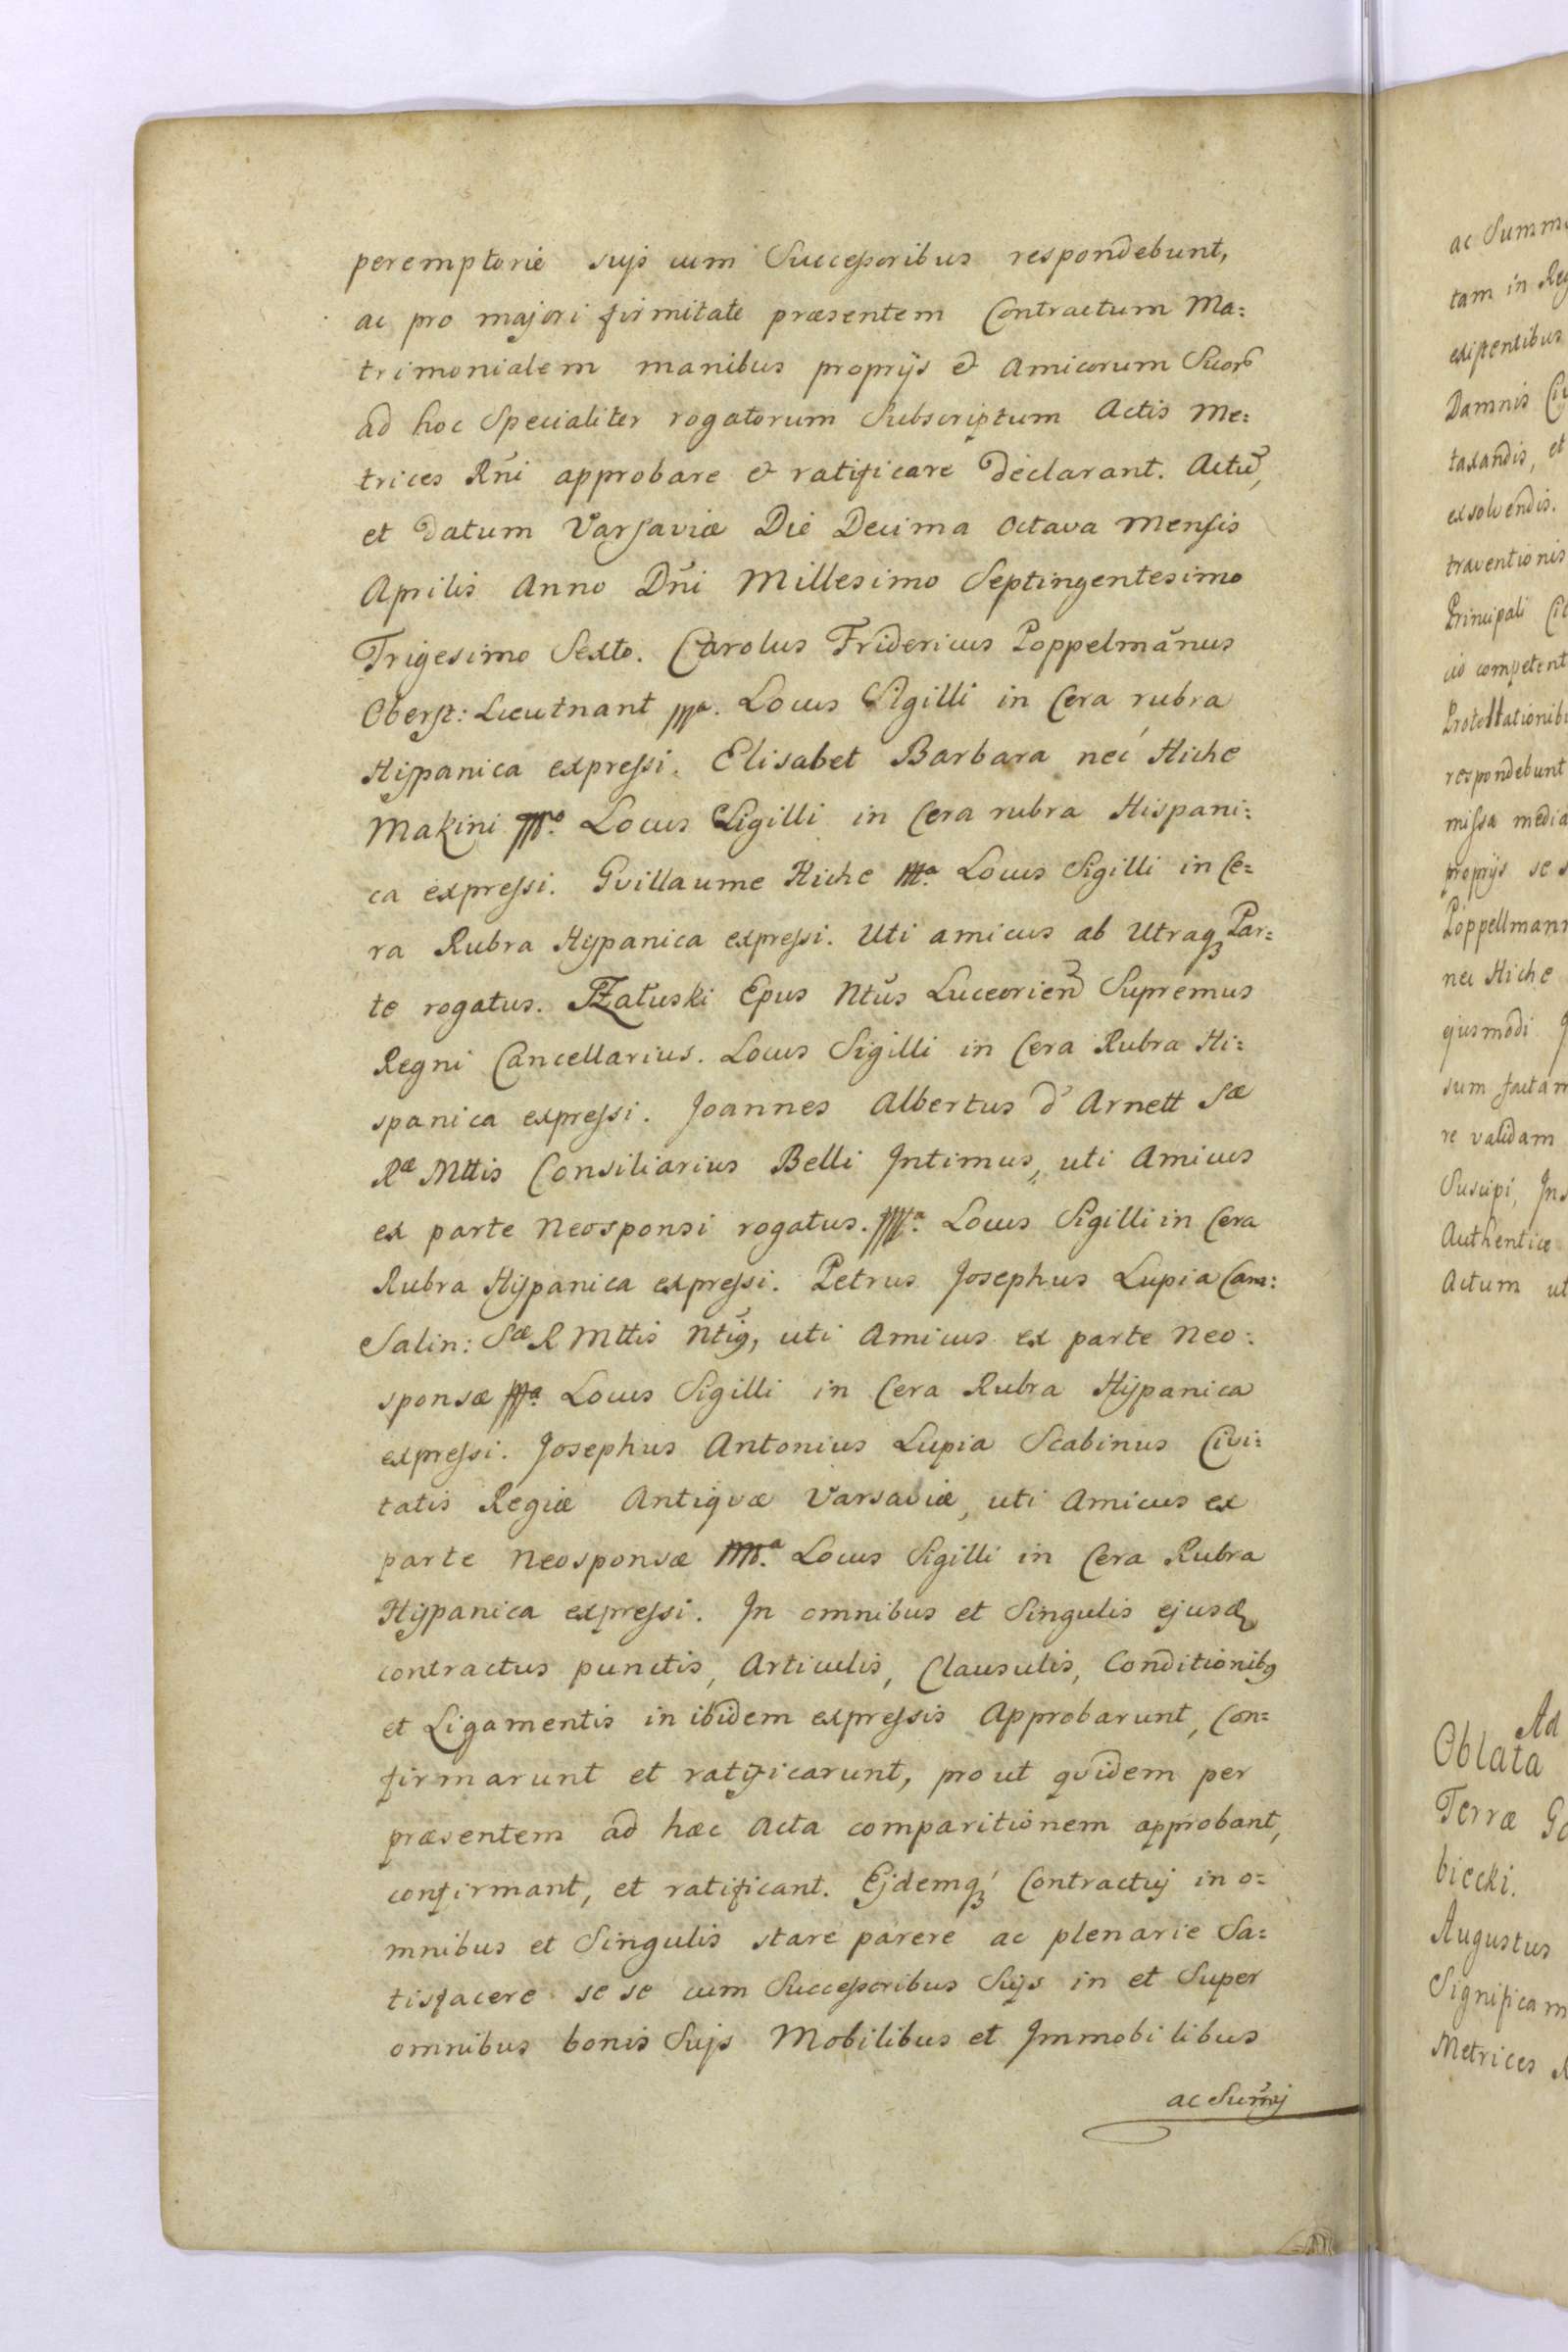 peremptorie suis cum Successoribus respondebunt,
ac pro majori firmitate præsentem Contractum Ma:
trimonialem manibus proprijs & Amicorum Suor
ad hoc Specialiter rogatorum Subscriptum Actis Me:
trices Rñi approbare & ratificare declarant. Actũ,
et Datum Varsaviæ Die Decima Octava Mensis
Aprilis Anno Dñi Millesimo Septingentesimo
Trigesimo Sexto. Carolus Fridericus Poppelmãnus
Oberst: Lieutnant mp. Locus Sigilli in Cera rubra
Hispanica expressi. Elisabet Barbara neé Hiche
Makini Locus Sigilli in Cera rubra Hispani:
ca expressi. Guillaume Hiche Locus Sigilli in Ce=
ra Rubra Hispanica expressi. Uti amicus ab Utraqꝫ Par=
te rogatus. Załuski Epus Ntus Luceorien Supremus
Regni Cancellarius. Locus Sigilli in Cera Rubra Hi:
spanica expressi. Joannes Albertus d' Arnett Sæ
Ræ Mttis Consiliarius Belli Intimus, uti Amicus
ex parte Neosponsi rogatus. Locus Sigilli in Cera
Rubra Hispanica expressi. Petrus Josephus Lupia Cam:
Salin: Sæ R Mttis Ntus, uti Amicus ex parte Neo:
sponsæ Locus Sigilli in Cera Rubra Hispanica
expressi. Josephus Antonius Lupia Scabinus Civi:
tatis Regiæ Antiquæ Varsaviæ, uti Amicus ex
parte Neosponsæ Locus Sigilli in Cera Rubra
Hispanica expressi. In omnibus et Singulis ejusd
contractus punctis, Articulis, Clausulis, Conditionibꝯ
et Ligamentis in ibidem expressis Approbarunt, Con=
firmarunt et ratificarunt, prout quidem per
præsentem ad hæc Acta comparitionem approbant,
confirmant, et ratificant. Ejdemqꝫ Contractuj in o=
mnibus et Singulis stare parere ac plenarie Sa=
tisfacere se se cum Successoribus Suis in et Super
omnibus bonis Suis Mobilibus et Immobilibus
ac Sum̃j
ac Summ
tam in Reg
existentibus
Damnis
taxandis, et
exsolvendis.
traventionis
Principali
competent
Protestationib
respondebunt
missa media
proprijs se
Poppellmann
nei Hiche
ejusmodi
sum factam
re validam
Suscipi,
Authentice
Actum ut
Ad
Oblata
Terræ
biecki.
Augustus
Significam
Metrices